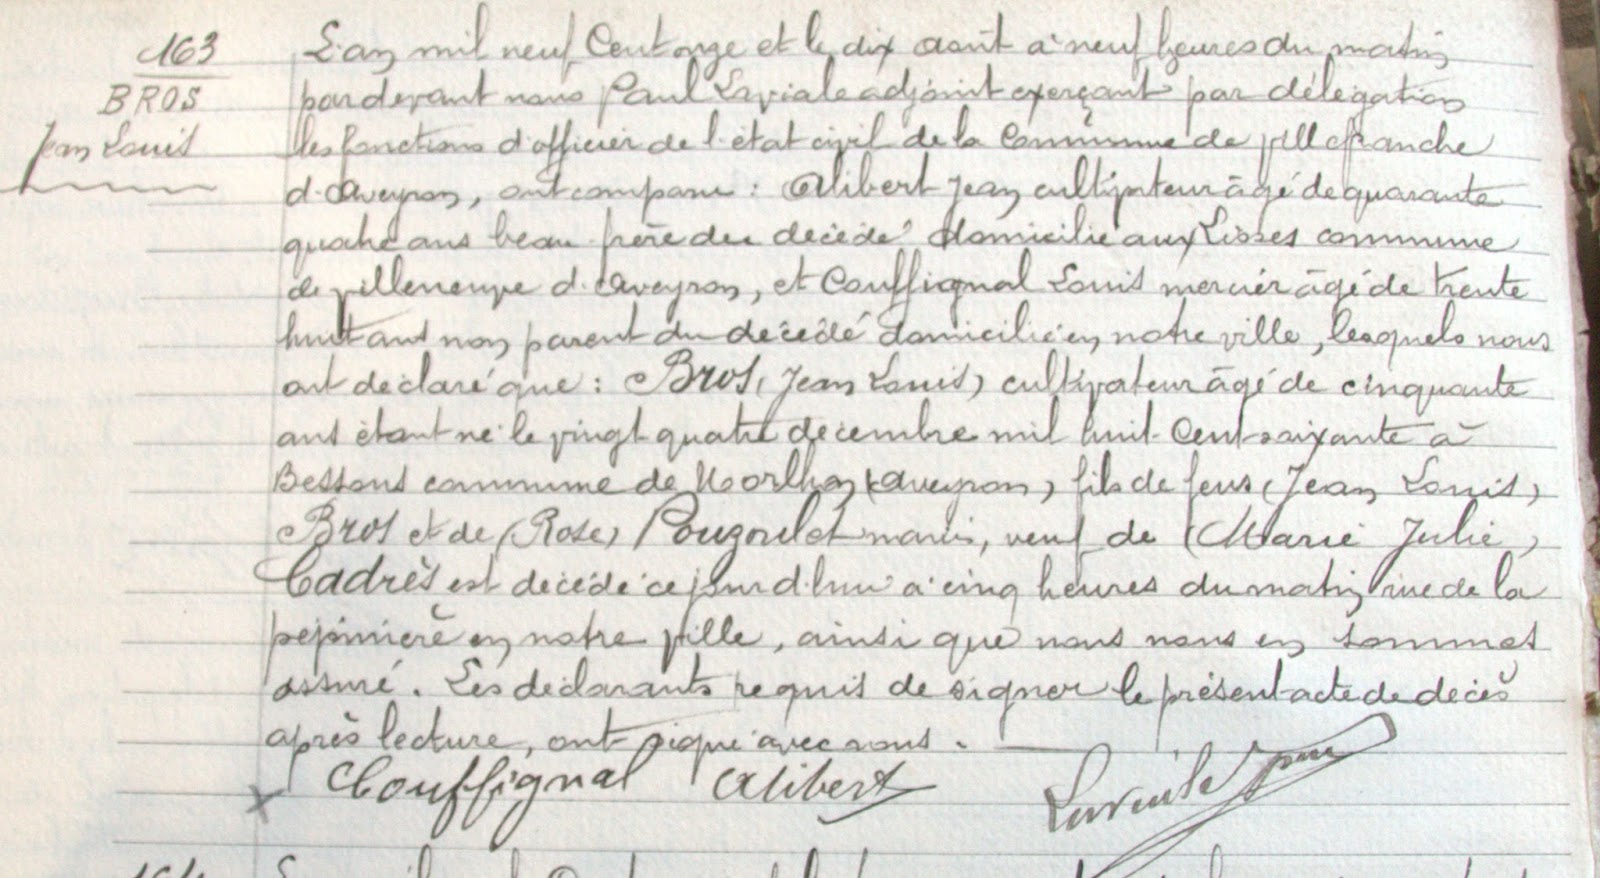 163
BROS
Jean Louis
L'an mil neuf Cent onze et le dix août à neuf heures du matin
pardevant nous Paul Laviale adjoint exerçant par délégation
les fonctions d'officier de l'état civil de la Commune de Villefranche
d'Aveyron, ont comparu : Alibert Jean cultivateur âgé de quarante
quatre ans beau frère du décédé domicilié aux Lisses commune
de Villeneuve d'Aveyron, et Couffignal Louis mercier âgé de trente
huit ans non parent du décédé domicilié en notre ville, lesquels nous
ont déclaré que : Bros (Jean Louis) cultivateur âgé de cinquante
ans étant né le vingt quatre décembre mil huit Cent soixante à
Bessous commune de Morlhon (Aveyron) fils de feus (Jean Louis)
Bros et de (Rose) Pouzoulet mariés, veuf de (Marie Julie)
Cadrès est décédé ce jourd'hui à cinq heures du matin rue de la
pépinière en notre ville, ainsi que nous nous en sommes
assuré. Les déclarants requis de signer le présent acte de décès
après lecture, ont signé avec nous.
Couffignal Alibert Laviale